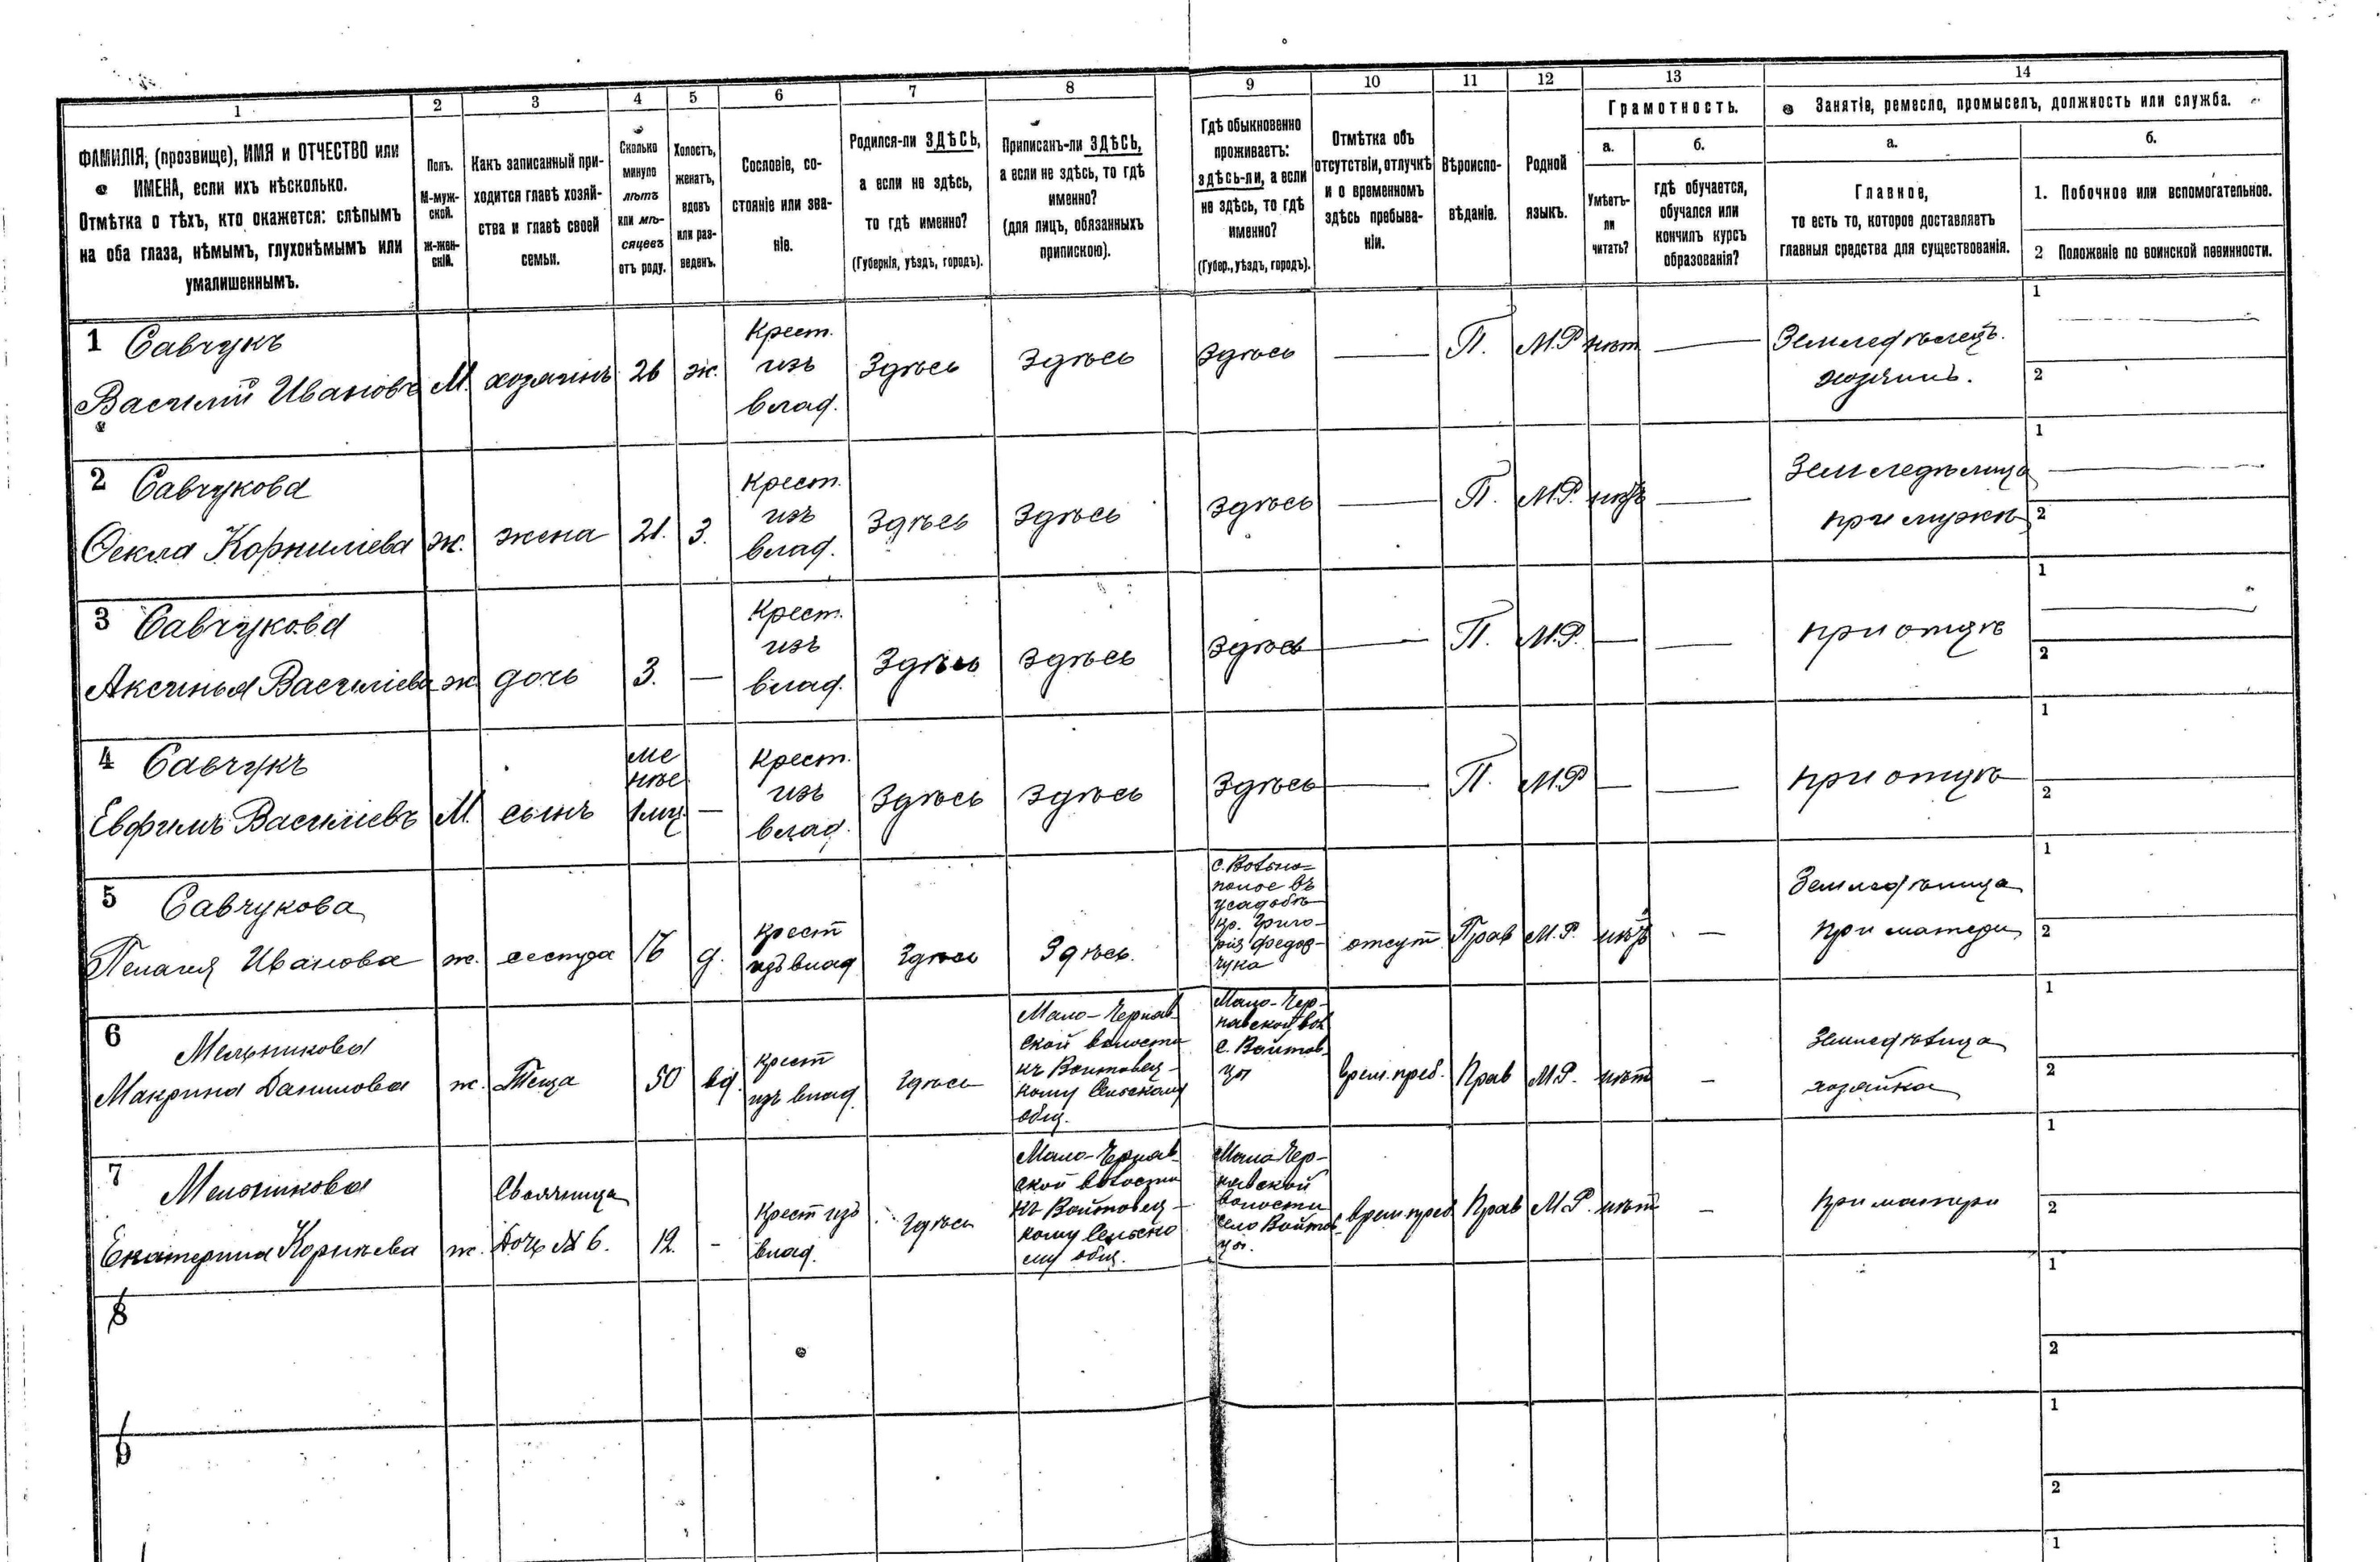 1 2 3 4 5 6 7 8 9 10 11 12 13 14
ФАМИЛІЯ, (прозвище), ИМЯ и ОТЧЕСТВО или
ИМЕНА, если ихъ нѣсколько.
Отмѣтка о тѣхъ, кто окажется: слѣпымъ
на оба глаза, нѣмымъ, глухонѣмымъ или
умалишеннымъ.
Полъ.
М-муж-
ской.
Ж-жен-
скій.
Какъ записанный при-
ходится главѣ хозяй-
ства и главѣ своей
семьи.
Сколько
минуло
лѣтъ
или мѣ-
сяцевъ
отъ роду.
Холостъ,
женатъ,
вдовъ
или раз-
веденъ.
Сословіе, со-
стояніе или зва-
ніе.
Родился-ли ЗДѢСЬ,
а если не здѣсь,
то гдѣ именно?
(Губернія, уѣздъ, городъ).
Приписанъ-ли ЗДѢСЬ,
а если не здѣсь, то гдѣ
именно?
(для лицъ, обязанныхъ
припискою).
Гдѣ обыкновенно
проживаетъ:
здѣсь-ли, а если
не здѣсь, то гдѣ
именно?
(Губер., уѣздъ, городъ).
Отмѣтка объ
отсутствіи, отлучкѣ
и о временномъ
здѣсь пребыва-
ніи.
Вѣроиспо-
вѣданіе.
Родной
языкъ.
Грамотность.
а.
Умѣетъ-
ли
читать?
б.
гдѣ обучается,
обучался или
кончилъ курсъ
образованія?
Занятіе, ремесло, промыселъ, должность или служба.
а.
Главное,
то есть то, которое доставляетъ
главныя средства для существованія.
б.
1. Побочное или вспомогательное.
2 Положеніе по воинской повинности.
1 Савчукъ
Василій Ивановъ
М.
хозяинъ
26
ж.
Крест.
изъ
влад.
Здѣсь
Здѣсь
Здѣсь
П.
М.Р
нѣт
Земледѣлецъ.
хозяинъ.
1
2
2 Савчукова
Ѳекла Корнилiева
ж.
жена
21.
З.
Крест.
изъ
влад.
Здѣсь
Здѣсь
Здѣсь
П.
М.Р.
нѣтъ
Земледѣлица
при мужѣ
1
2
3 Савчукова
Аксинья Василіева
ж
дочь
3.
Крест.
изъ
влад.
Здѣсь
Здѣсь
Здѣсь
П.
М.Р.
при отцѣ
1
2
4 Савчукъ
Евфимъ Василіевъ
М.
сынъ
ме
нѣе
1 мц.
Крест.
изъ
влад.
Здѣсь
Здѣсь
Здѣсь
П.
М.Р
при отцѣ
1
2
5 Савчукова
Пелагея Иванова
ж.
сестра
16
д.
Крест
изъ влад
Здѣсь
Здѣсь.
усадьбѣ
кр. Григо-
рія Федор-
чука
отсут.
Прав
М.Р.
нѣтъ
Земледѣлица
при матери
1
2
6
Мельникова
Макрина Данилова
ж.
Теща
50
вд.
Крест
изъ влад.
Здѣсь
Мало-Черняв-
ской волости
къ Войтовец-
кому Сельскому
общ.
Мало-Чер-
нявской вол
с. Войтов-
цы
врем. преб.
Прав
М.Р.
нѣт
Земледѣлица
хозяйка
1
2
7
Мельникова
Екатерина Корнiева
ж.
Своячница
Дочь № 6.
12.
Крест изъ
влад.
Здѣсь
Мало-Черняв-
ской волости
къ Войтовец-
кому Сельско
му общ.
Мало-Чер-
нявской
волости
село Войтов-
цы.
врем. преб
Прав
М.Р.
нѣт
при матери
1
2
8
1
2
9
1
2
1